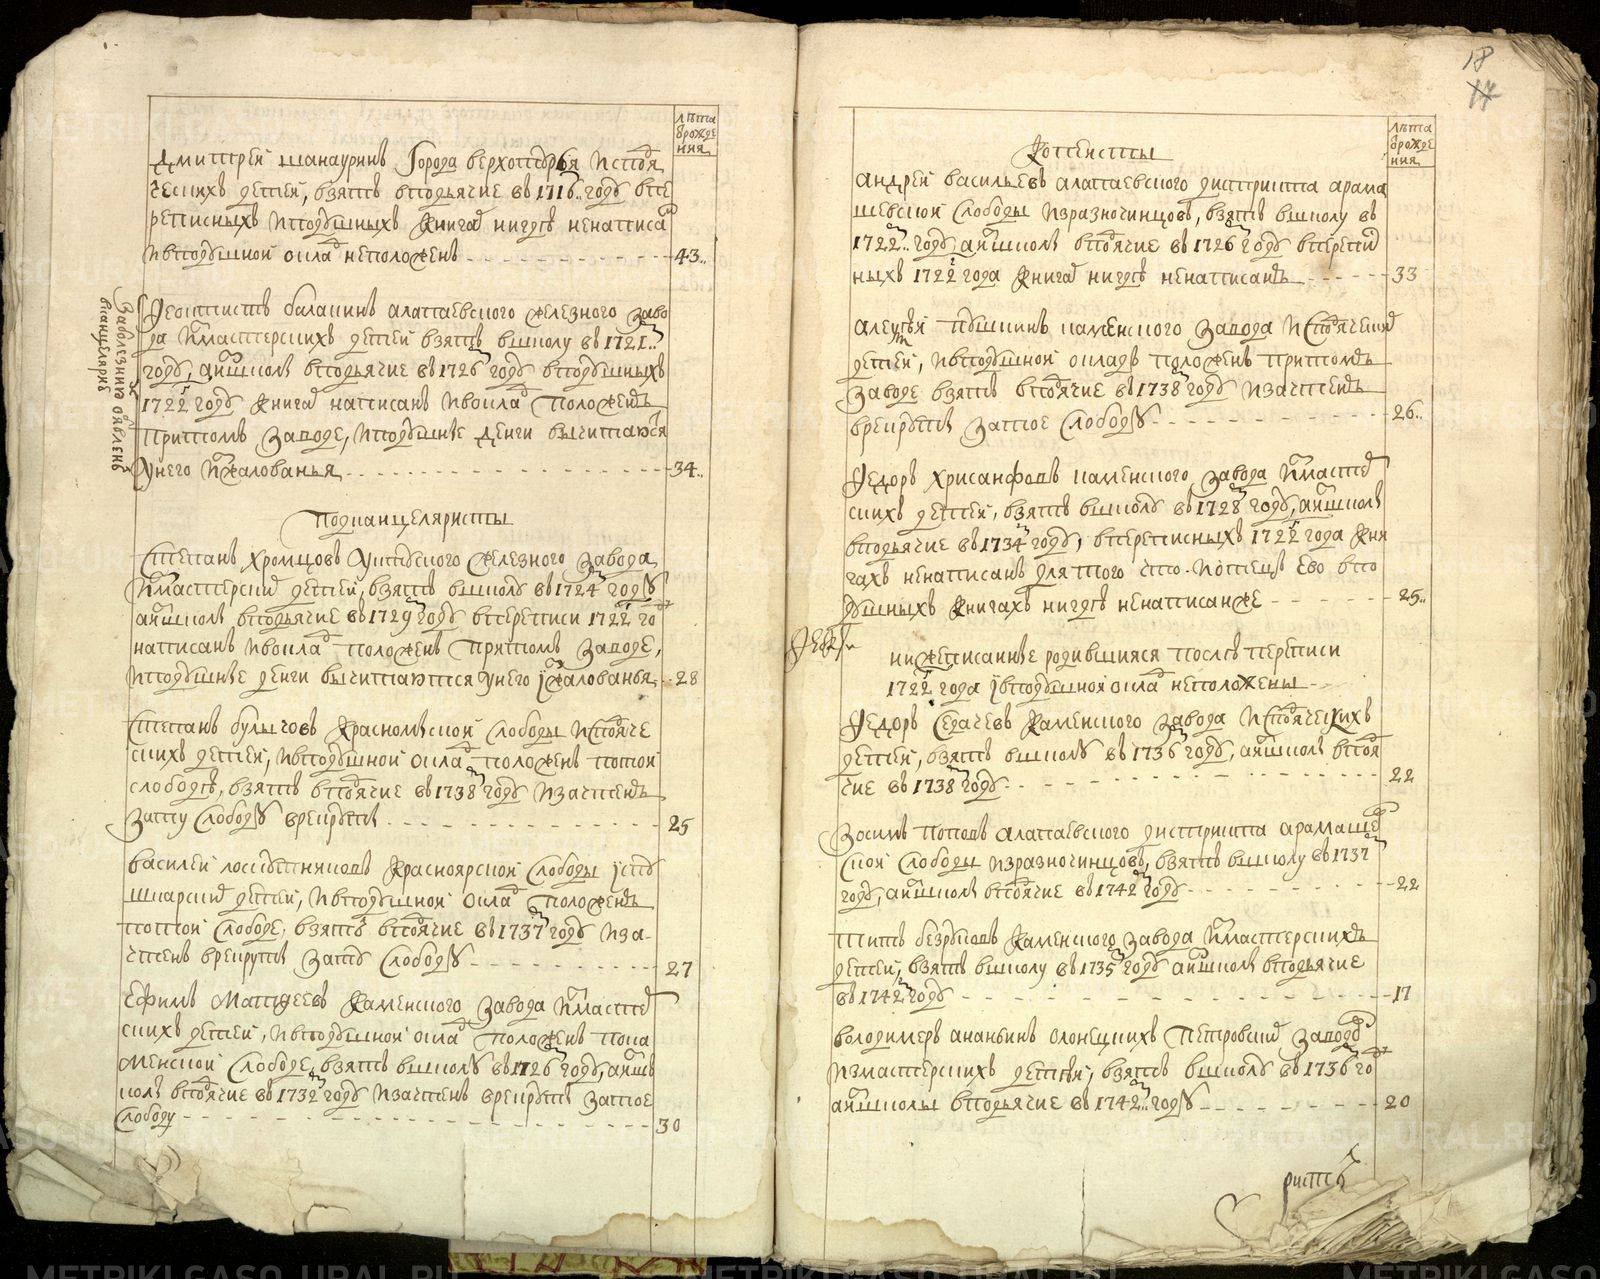 лѣта
ѿрожде
ния
Дмитрей шанауринъ Города верхотурья исподя
ческихъ детей, взятъ вподьячие въ 1716 году впе
реписныхъ иподушныхъ книгах нигдѣ ненаписа
ивподушной оклад неположенъ 43
Заболезнию оставленъ
вканцелярие
Феоктистъ балакинъ алапаевского железного заво
да измастерскихъ детей взятъ вшколу въ 1721
году, аизшколъ вподьячие въ 1726 году вподушныхъ
1722 году книгах написанъ ивоклад положенъ
притомъ заводе, иподушные денги вычитаются
унего изжалованья 34
Подканцеляристы
Степанъ хромцовъ уктуского железного завода
измастерских детей, взятъ вшколу въ 1724 году
аизшколъ вподьячие въ 1729 году вперепись 1722 го
написанъ ивоклад положенъ притомъ заводе,
иподушные денги вычитаются унего изжалованья 28
Степанъ булычовъ Красномыской Слободы исподяче
скихъ детей, ивподушной оклад положенъ потой
слободѣ, взятъ вподячие въ 1738 году изачтенъ
Затту Слободу врекрутъ 25
василей Красноярской Слободы
детей, ивподушной оклад положенъ
потой Слободе, взятъ вподячие въ 1737 году иза
чтенъ врекруты зату Слободу 27
Ефимъ Матфеевъ Каменского завода измастер
скихъ детей, ивподушной оклад положенъ пока
менской Слободе, взятъ вшколу въ 1726 году, аизш
колъ вподячие въ 1732 году изачтенъ врекруты затое
Слободу 30
18
17
лѣта
ѿрожде
ния
Копеисты
андрей васильевъ алапаевского дистрикта арама
шевской Слободы изразночинцовъ, взятъ вшколу въ
1722 году, аизшколъ вподячие въ 1726 году вперепис
ныхъ 1722 года книгах нигдѣ ненаписанъ 33
алексей пушкинъ каменского завода исподячеких
детей, ивподушной окладъ положенъ притомъ
заводе взятъ вподячие въ 1738 году изачтенъ
врекруты затое Слободу 26
Федоръ Хрисанфовъ каменского завода измастер
скихъ детей, взятъ вшколу въ 1728 году, аизшколъ
вподьячие въ 1734 году, впереписныхъ 1722 года кни
гахъ ненаписанъ длятого что отецъ ево впо
душныхъ книгахъ нигдѣ ненаписанже 25
нижеписанные родившияся послѣ переписи
1722 года ивподушной оклад неположены
Федоръ Каменского завода исподяческихъ
детей, взятъ вшколу въ 1736 году, аизшколъ вподя
чие въ 1738 году 22
Зосимъ Поповъ алапаевского дистрикта арамаше
ской Слободы изразночинцовъ, взятъ вшколу въ 1737
году, аизшколъ вподячие въ 1742 году 22
Титъ безруковъ Каменского завода измастерскихъ
детей, взятъ вшколу въ 1735 году аизшколъ вподьячие
въ 1742 году 17
володимеръ ананьинъ олонецкихъ Петровских заводов
измастерскихъ детей, взятъ вшколу въ 1736 го
аизшколы вподьячие въ 1742 году 20